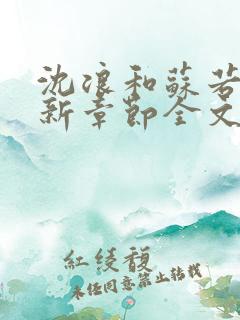 沈浪和蘇若
新章節全文
紅綾馥
未經同意禁止轉載